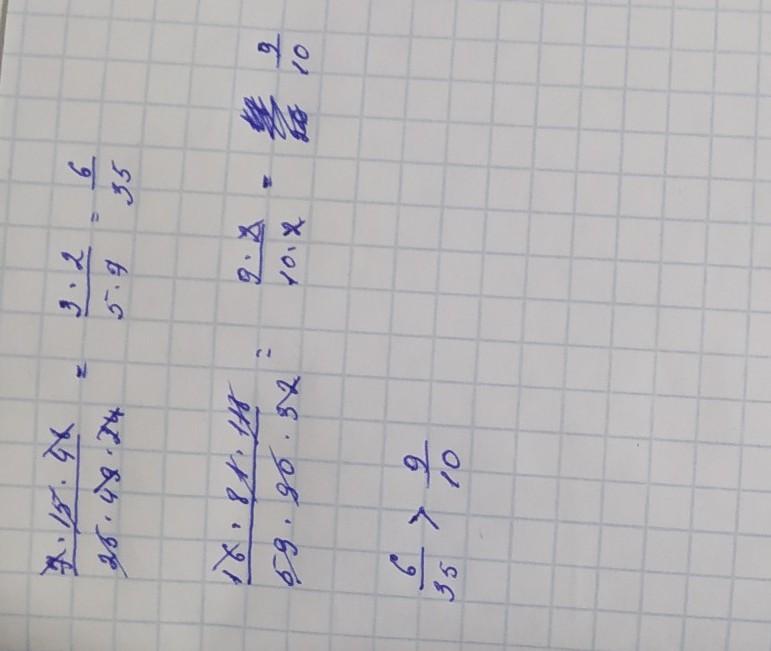 7·15·48
25·49·24
= 3·2
5·7
= 6
35
16·81·118
59·90·32
= 9·2
10·2
= 9
10
6
35
> 9
10